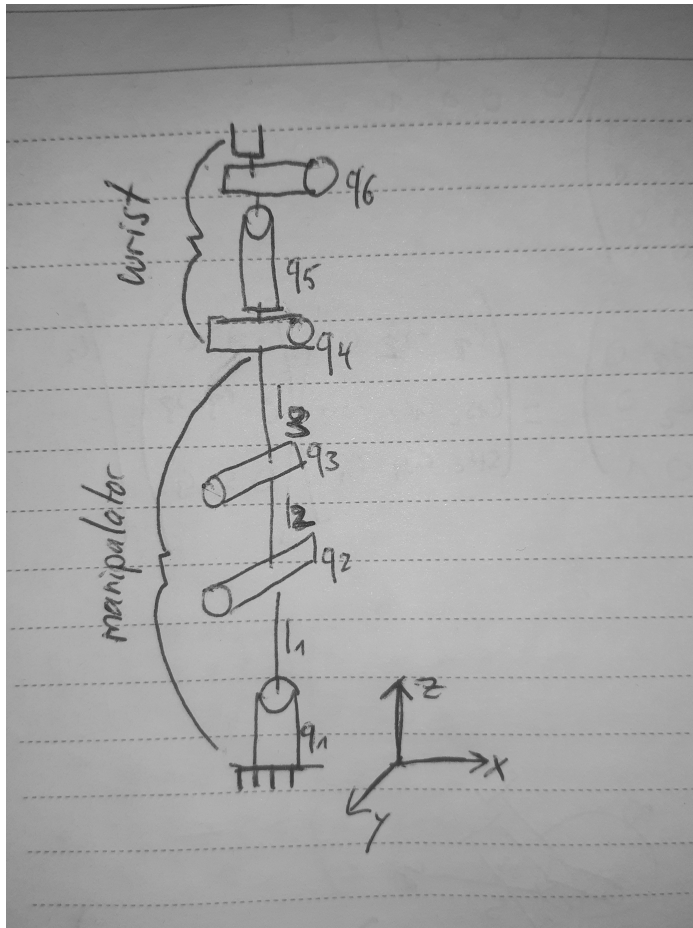 q6
wrist
q5
q4
l3
q3
l2
q2
manipulator
l1
q1
z
x
y